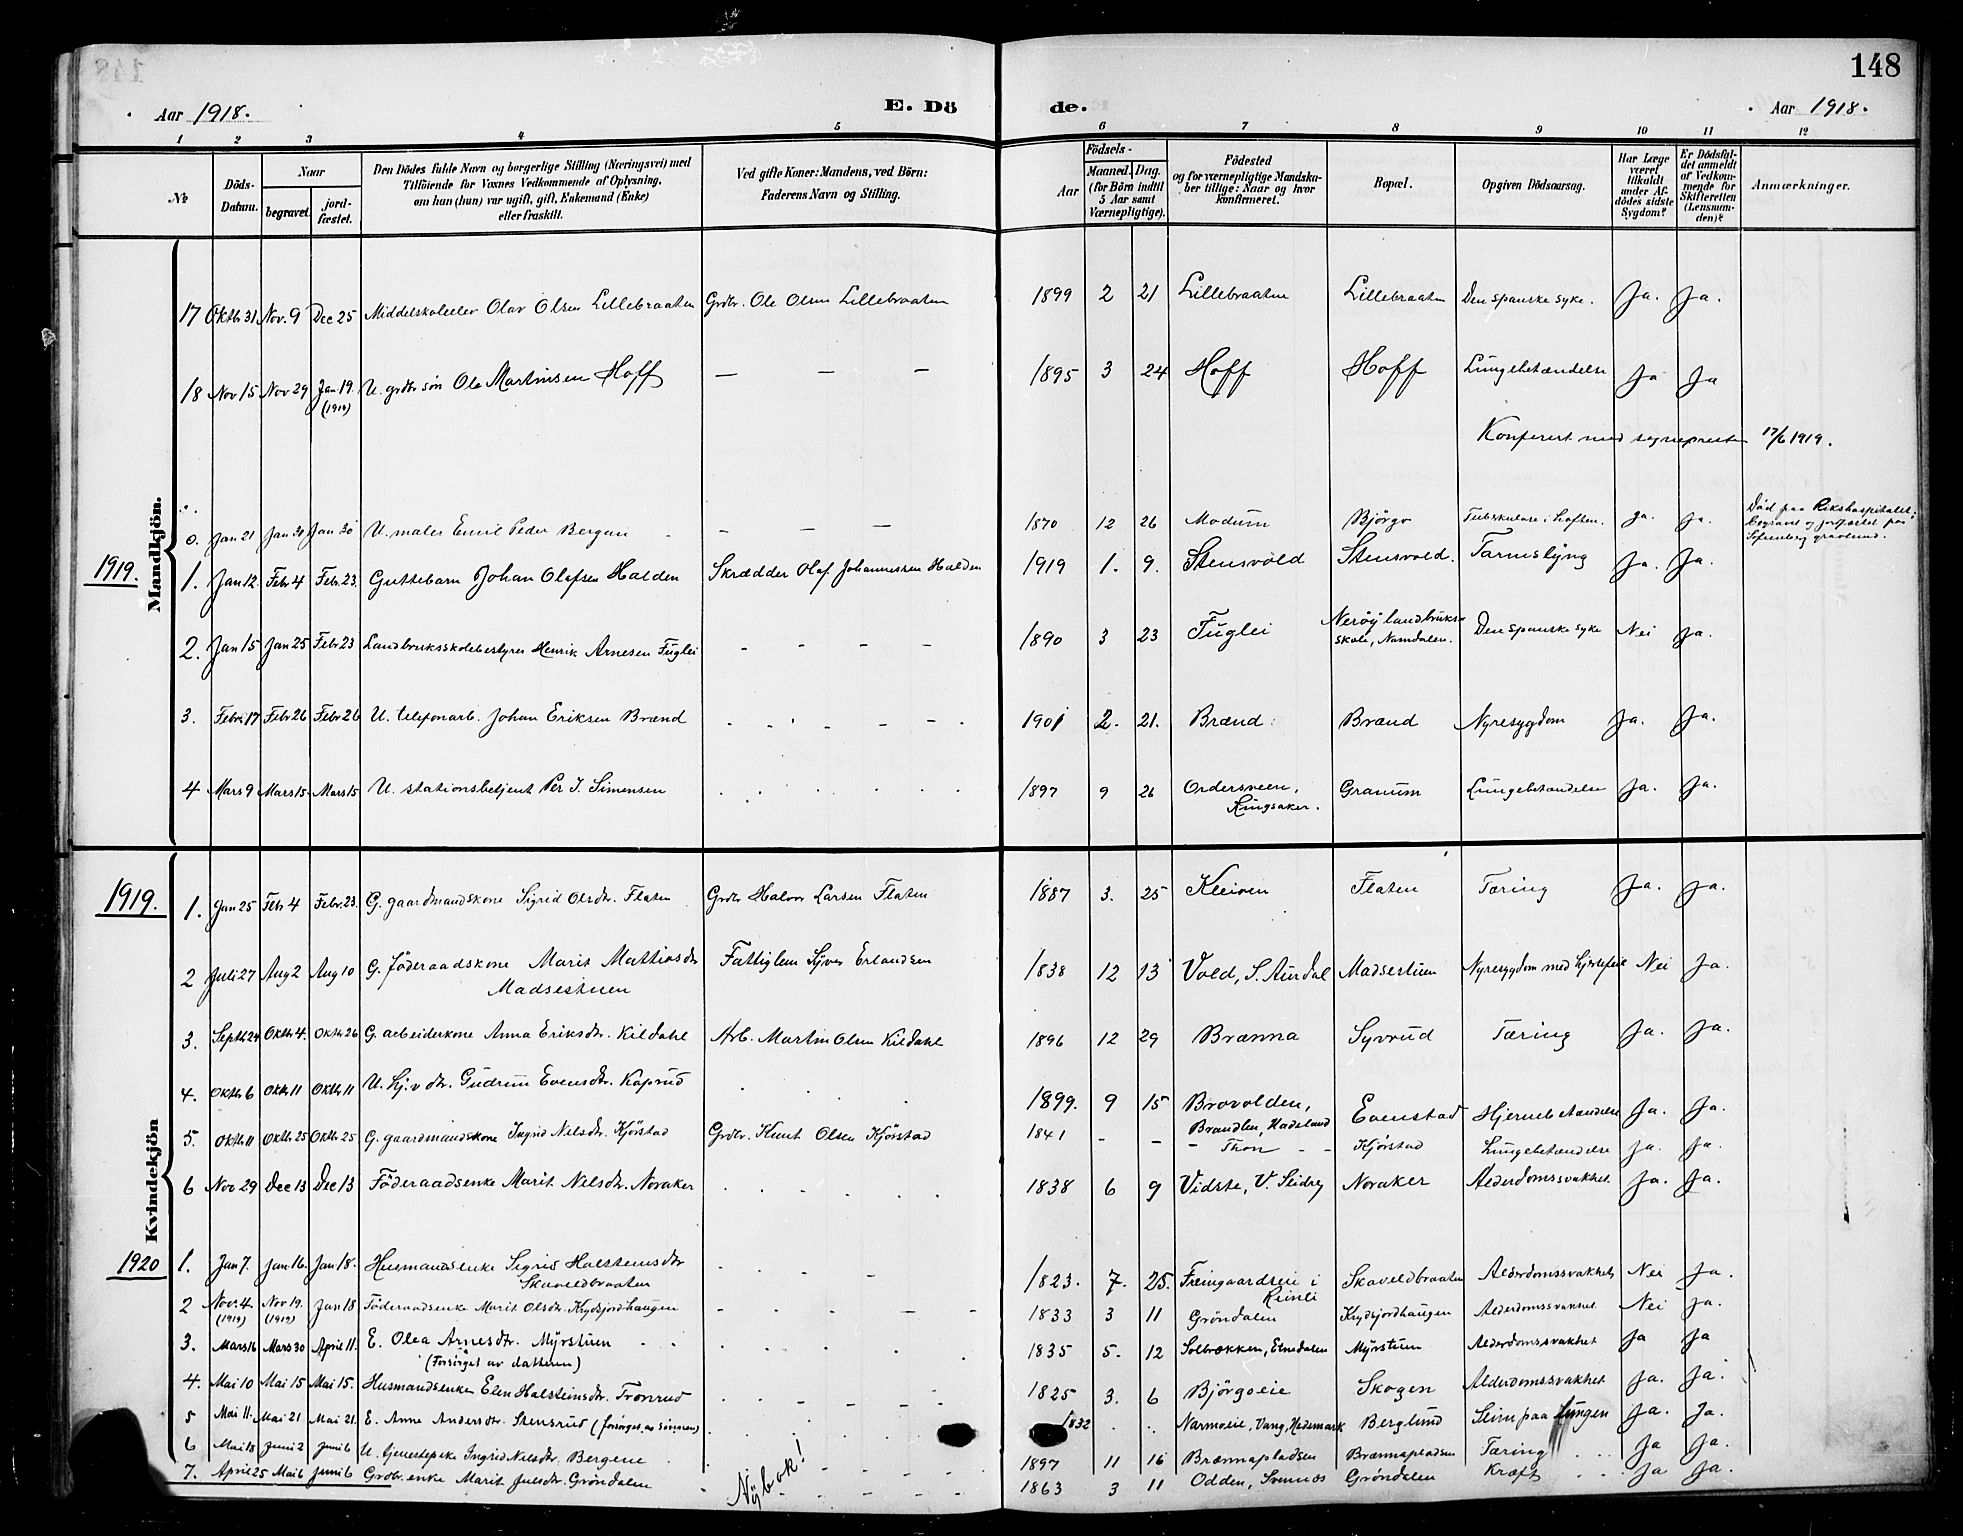 148
Aar 1918.
E. Dö
de.
Aar 1918.
1 2 3 4 5 6 7 8 9 10 11 12
No
Döds-Datum.
Naar
begravet.
jord-fæstet.
Den Dödes fulde Navn og borgerlige Stilling (Næringsvei) med
Tilföiende for Voxnes Vedkommende af Oplysning,
om han (hun) var ugift, gift, Enkemand (Enke)
eller fraskilt.
Ved gifte Koner: Mandens, ved Börn:
Faderens Navn og Stilling.
Födsels-
Aar
Maaned. Dag.
(for Börn indtil
5 Aar samt
Værnepligtige).
Födested
og for værnepligtige Mandska-
ber tillige: Naar og hvor
konfirmeret.
Bopæl.
Opgiven Dödsaarsag.
Har Læge
været
tilkaldt
under Af-
dödes sidste
Sygdom?
Er Dödsfal-
det anmeldt
af Vedkom-
mende for
Skifteretten
(Lensman-
den)?
Anmærkninger.
Mandkjön.
17 Oktbr 31 Nov. 9 Dec 25 Middelskoleelev Olav Olsen Lillebraaten Grdbr. Ole Olsen Lillebraaten 1899 2 21 Lillebraaten Lillebraaten Den spanske syke. Ja. Ja.
18 Nov 15 Nov 29 Jan 19. (1919) U. grdbr søn Ole Martinsen Hoff — — — 1895 3 24 Hoff Hoff Lungebetændelse Ja Ja
Konferert med sognepresten 17/6 1919.
0. Jan 21 Jan 30 Jan 30 U. maler Emil Peder Bergan - - - 1870 12 26 Modum Björgo Tuberkulose i hoften. Ja. Ja. Död paa Rikshospitalet; Begravet og jordfæstet paa Sofienberg gravlund.
1919.
1. Jan 12. Febr 4 Febr. 23. Guttebarn Johan Olafsen Halden Skrædder Olaf Johannessen Halden 1919 1. 9. Stensvold Stensvold. Tarmslyng Ja. Ja.
2. Jan 15 Jan 25 Febr 23 Landbruksskolebestyrer Henrik Arnesen Fuglei - - - - 1890 3 23 Fuglei Nerøy landbruks-skole, Namdalen. Den spanske syke Nei Ja.
3. Febr. 17 Febr 26 Febr 26 U. telefonarb. Johan Eriksen Brænd - - - - 1901 2. 21. Brænd. Brænd Nyresygdom Ja. Ja.
4 Mars 9 Mars 15 Mars 15 U. stationsbetjent Per J. Simensen 1897 9 26 Ordersveen, Ringsaker. Granum Lungebetændelse Ja. Ja.
Kvindekjön
1919.
1. Jan 25 Febr 4 Febr. 23. G. gaardmandskone Sigrid Olsdtr. Flaten Grdbr Halvor Larsen Flaten 1887 3. 25 Kleiven Flaten Tæring Ja. Ja.
2 Juli 27 Aug 2 Aug 10 G. Föderaadskone Marit Mathiasdtr Madsestuen Fattiglem Syver Erlandsen 1838 12 13 Vold, S. Aurdal Madsestuen Nyresygdom med hjertefeil Nei Ja.
3. Septbr 24 Oktbr 4. Oktbr 26 G. arbeiderkone Anna Eriksdtr. Kildahl Arb. Martin Olsen Kildahl 1896 12 29 Brænna Syvrud Tæring Ja. Ja.
4. Oktbr 6 Oktbr 11 Oktbr 11 U. hj.v dtr. Gudrun Evensdtr. Kaprud 1899. 9 15 Brovolden, Brandbu, Hadeland Evenstad Hjernebetændelse Ja. Ja.
5. Oktbr 11 Oktbr 25 Oktbr 25 G. gaardmandskone Ingrid Nilsdtr. Kjörstad Grdbr. Knut Olsen Kjörstad 1841 - - - Thon - - Kjörstad Lungebetændelse Ja. Ja.
6 Nov 29 Dec 13 Dec 13 Föderaadsenke Marit Nilsdtr. Noraker 1838 6 9 Vidste, V. Slidre Noraker Alderdomssvakhet Ja. Ja.
1920
1. Jan 7. Jan. 16. Jan 18. Husmandsenke Sigrid Halsteinsdtr Skaveldbraaten 1823. 7. 25. Fæingaardseie i Reinli Skaveldbraaten Alderdomssvakhet Nei Ja.
2 Nov. 4. (1919) Nov 19. (1919) Jan 18 Föderaadsenke Marit Olsdtr. Krydsjordhaugen 1833 3 11 Gröndalen Krydsjordhaugen Alderdomssvakhet Nei Ja.
3. Mars 16 Mars 30 April 11. E. Olea Arnesdtr. Myrstuen (Forsörget av datteren) 1835 5. 12 Solbrækken, Etnedalen Myrstuen Alderdomssvakhet Ja Ja
4. Mai 10 Mai 15 Mai 15. Husmandsenke Elen Halsteinsdtr. Tronrud 1825 3. 6 Björgoeie Skogen Alderdomssvakhet Ja. Ja.
5 Mai 11. Mai 21 Mai 21. E. Anne Andersdtr. Stensrud (forsörget av sönnen) 1832 Narmoeie, Vang, Hedemark Berglund Slim paa lungen Ja. Ja.
6 Mai 18 Juni 2 Juni 6 U. tjenestepike Ingrid Nilsdtr. Bergene 1897 11 16 Brænnapladsen Brænnapladsen Tæring Ja Ja.
7. April 25 Mai 6 Juni 6 Grdbr. enke Marit Julsdtr. Gröndalen 1863 3 11 Odden, Svennes Gröndalen Kræft Ja Ja.
Ny bok!